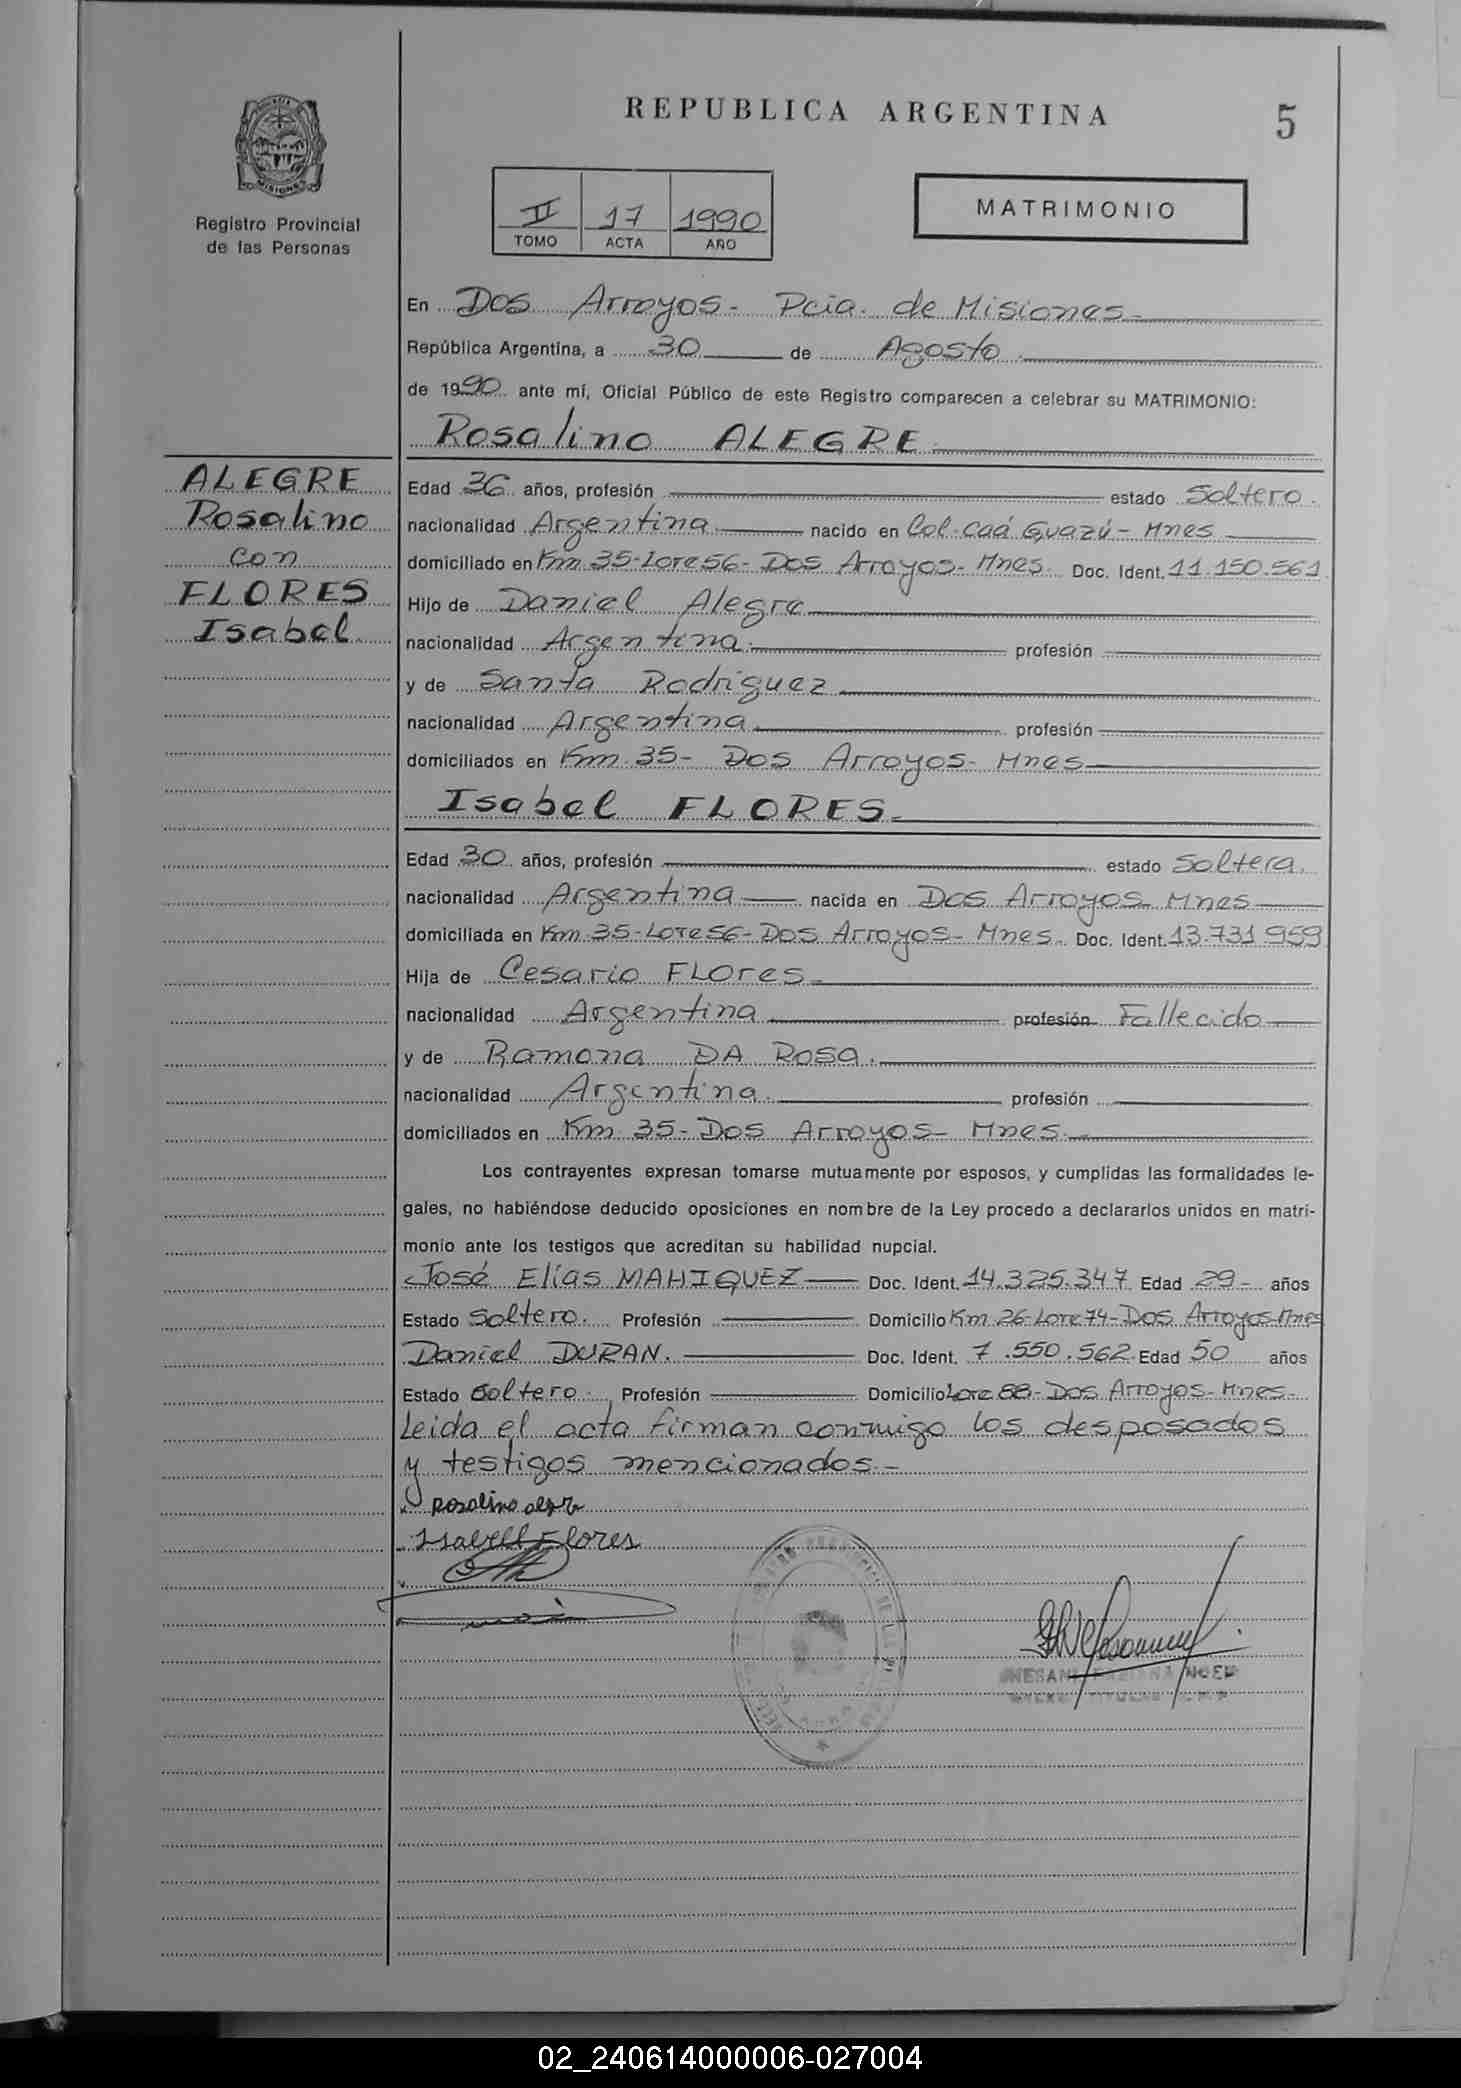 REPUBLICA ARGENTINA
5
MISIONES
Registro Provincial
de las Personas
II 17 1990
TOMO ACTA AÑO
MATRIMONIO
En Dos Arroyos - Pcia. de Misiones
República Argentina, a 30 de Agosto
de 1990 ante mí, Oficial Público de este Registro comparecen a celebrar su MATRIMONIO:
Rosalino ALEGRE
ALEGRE
Rosalino
con
FLORES
Isabel
Edad 36 años, profesión estado Soltero.
nacionalidad Argentina nacido en Col. Caá Guazú - Mnes
domiciliado en Km. 35-Lote 56- Dos Arroyos- Mnes. Doc. Ident. 11.150.561
Hijo de Daniel Alegre
nacionalidad Argentina profesión
y de Santa Rodriguez
nacionalidad Argentina profesión
domiciliados en Km. 35- Dos Arroyos- Mnes
Isabel FLORES
Edad 30 años, profesión estado Soltera.
nacionalidad Argentina nacida en Dos Arroyos- Mnes
domiciliada en Km. 35-Lote 56-Dos Arroyos- Mnes. Doc. Ident. 13.731.959
Hija de Cesario FLores
nacionalidad Argentina profesión Fallecido
y de Ramona DA Rosa.
nacionalidad Argentina. profesión
domiciliados en Km. 35-Dos Arroyos- Mnes.
Los contrayentes expresan tomarse mutuamente por esposos, y cumplidas las formalidades le-
gales, no habiéndose deducido oposiciones en nombre de la Ley procedo a declararlos unidos en matri-
monio ante los testigos que acreditan su habilidad nupcial.
José Elías MAHIQUEZ Doc. Ident. 14.325.347 Edad 29- años
Estado Soltero. Profesión Domicilio Km 26-Lote 74-Dos Arroyos-Mnes
Daniel DURAN. Doc. Ident. 7.550.562. Edad 50 años
Estado Soltero. Profesión Domicilio Lote 88-Dos Arroyos-Mnes-
Leida el acta firman conmigo los desposados
y testigos mencionados.-
Rosalino alegre
Isabell Flores
02_240614000006-027004